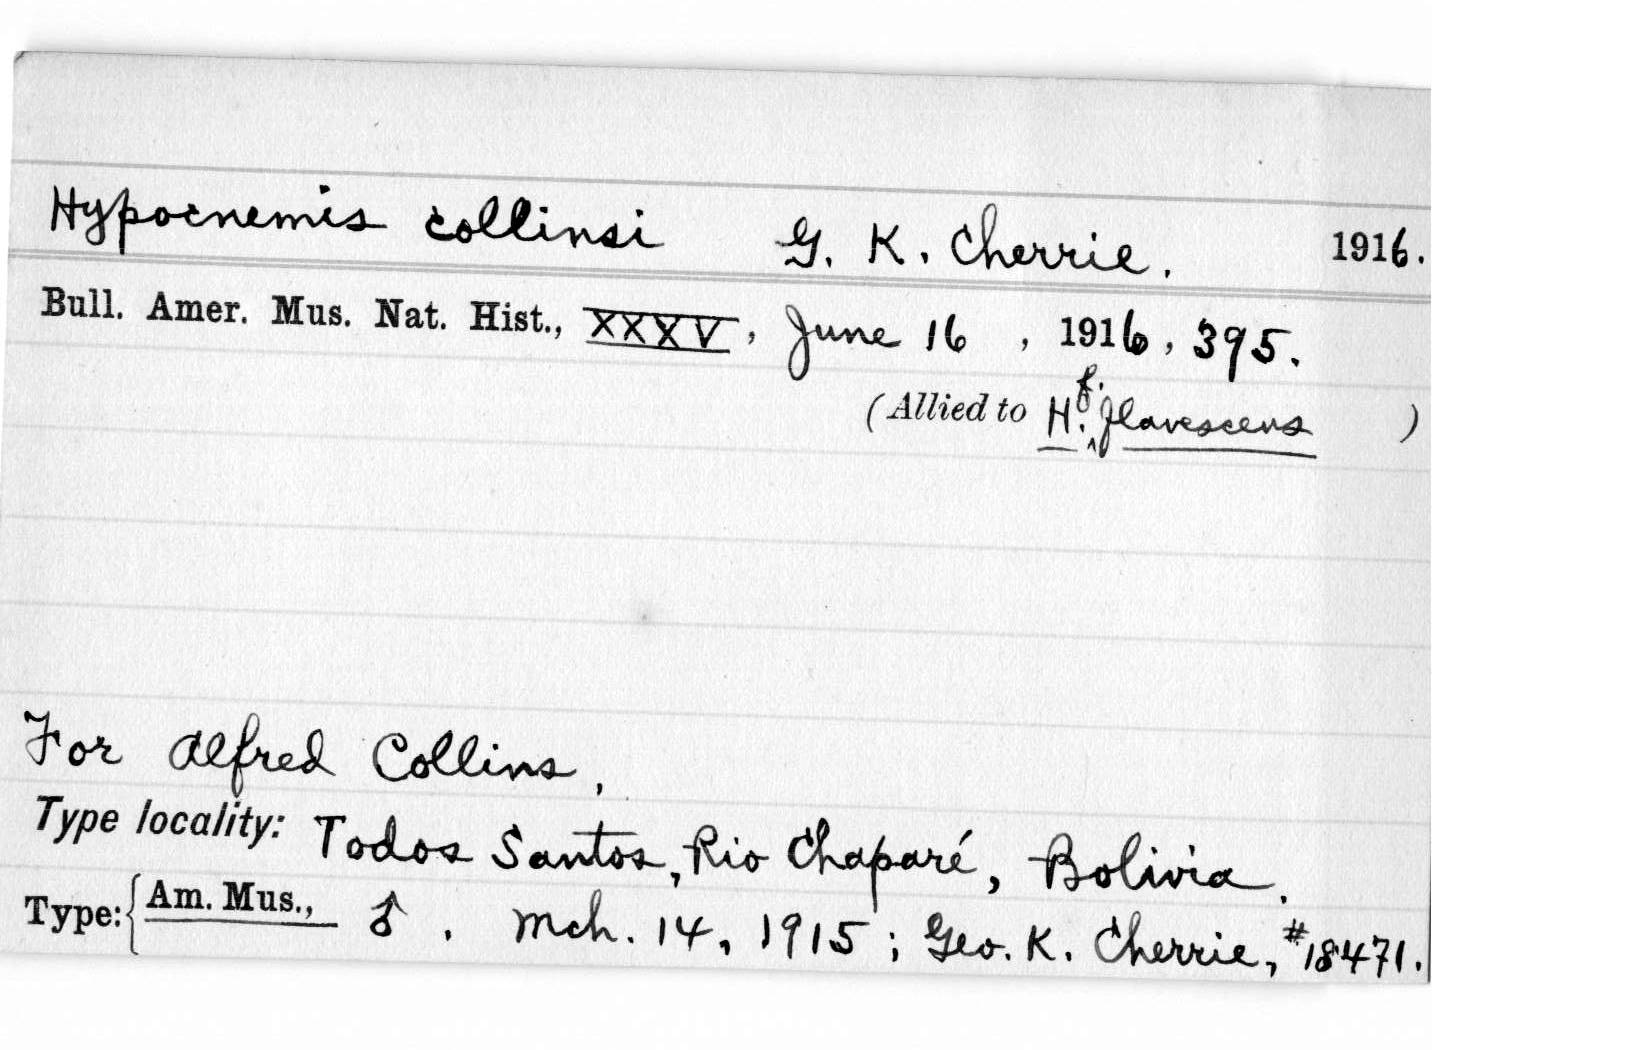 Hypocnemis collinsi G. K. Cherrie. 1916.
Bull. Amer. Mus. Nat. Hist., XXXV, June 16, 1916, 395.
(Allied to H. f. flavescens)
For Alfred Collins,
Type locality: Todos Santos, Rio Chaparé, Bolivia.
Type: { Am. Mus., ♂. Mch. 14, 1915; Geo. K. Cherrie, #18471.